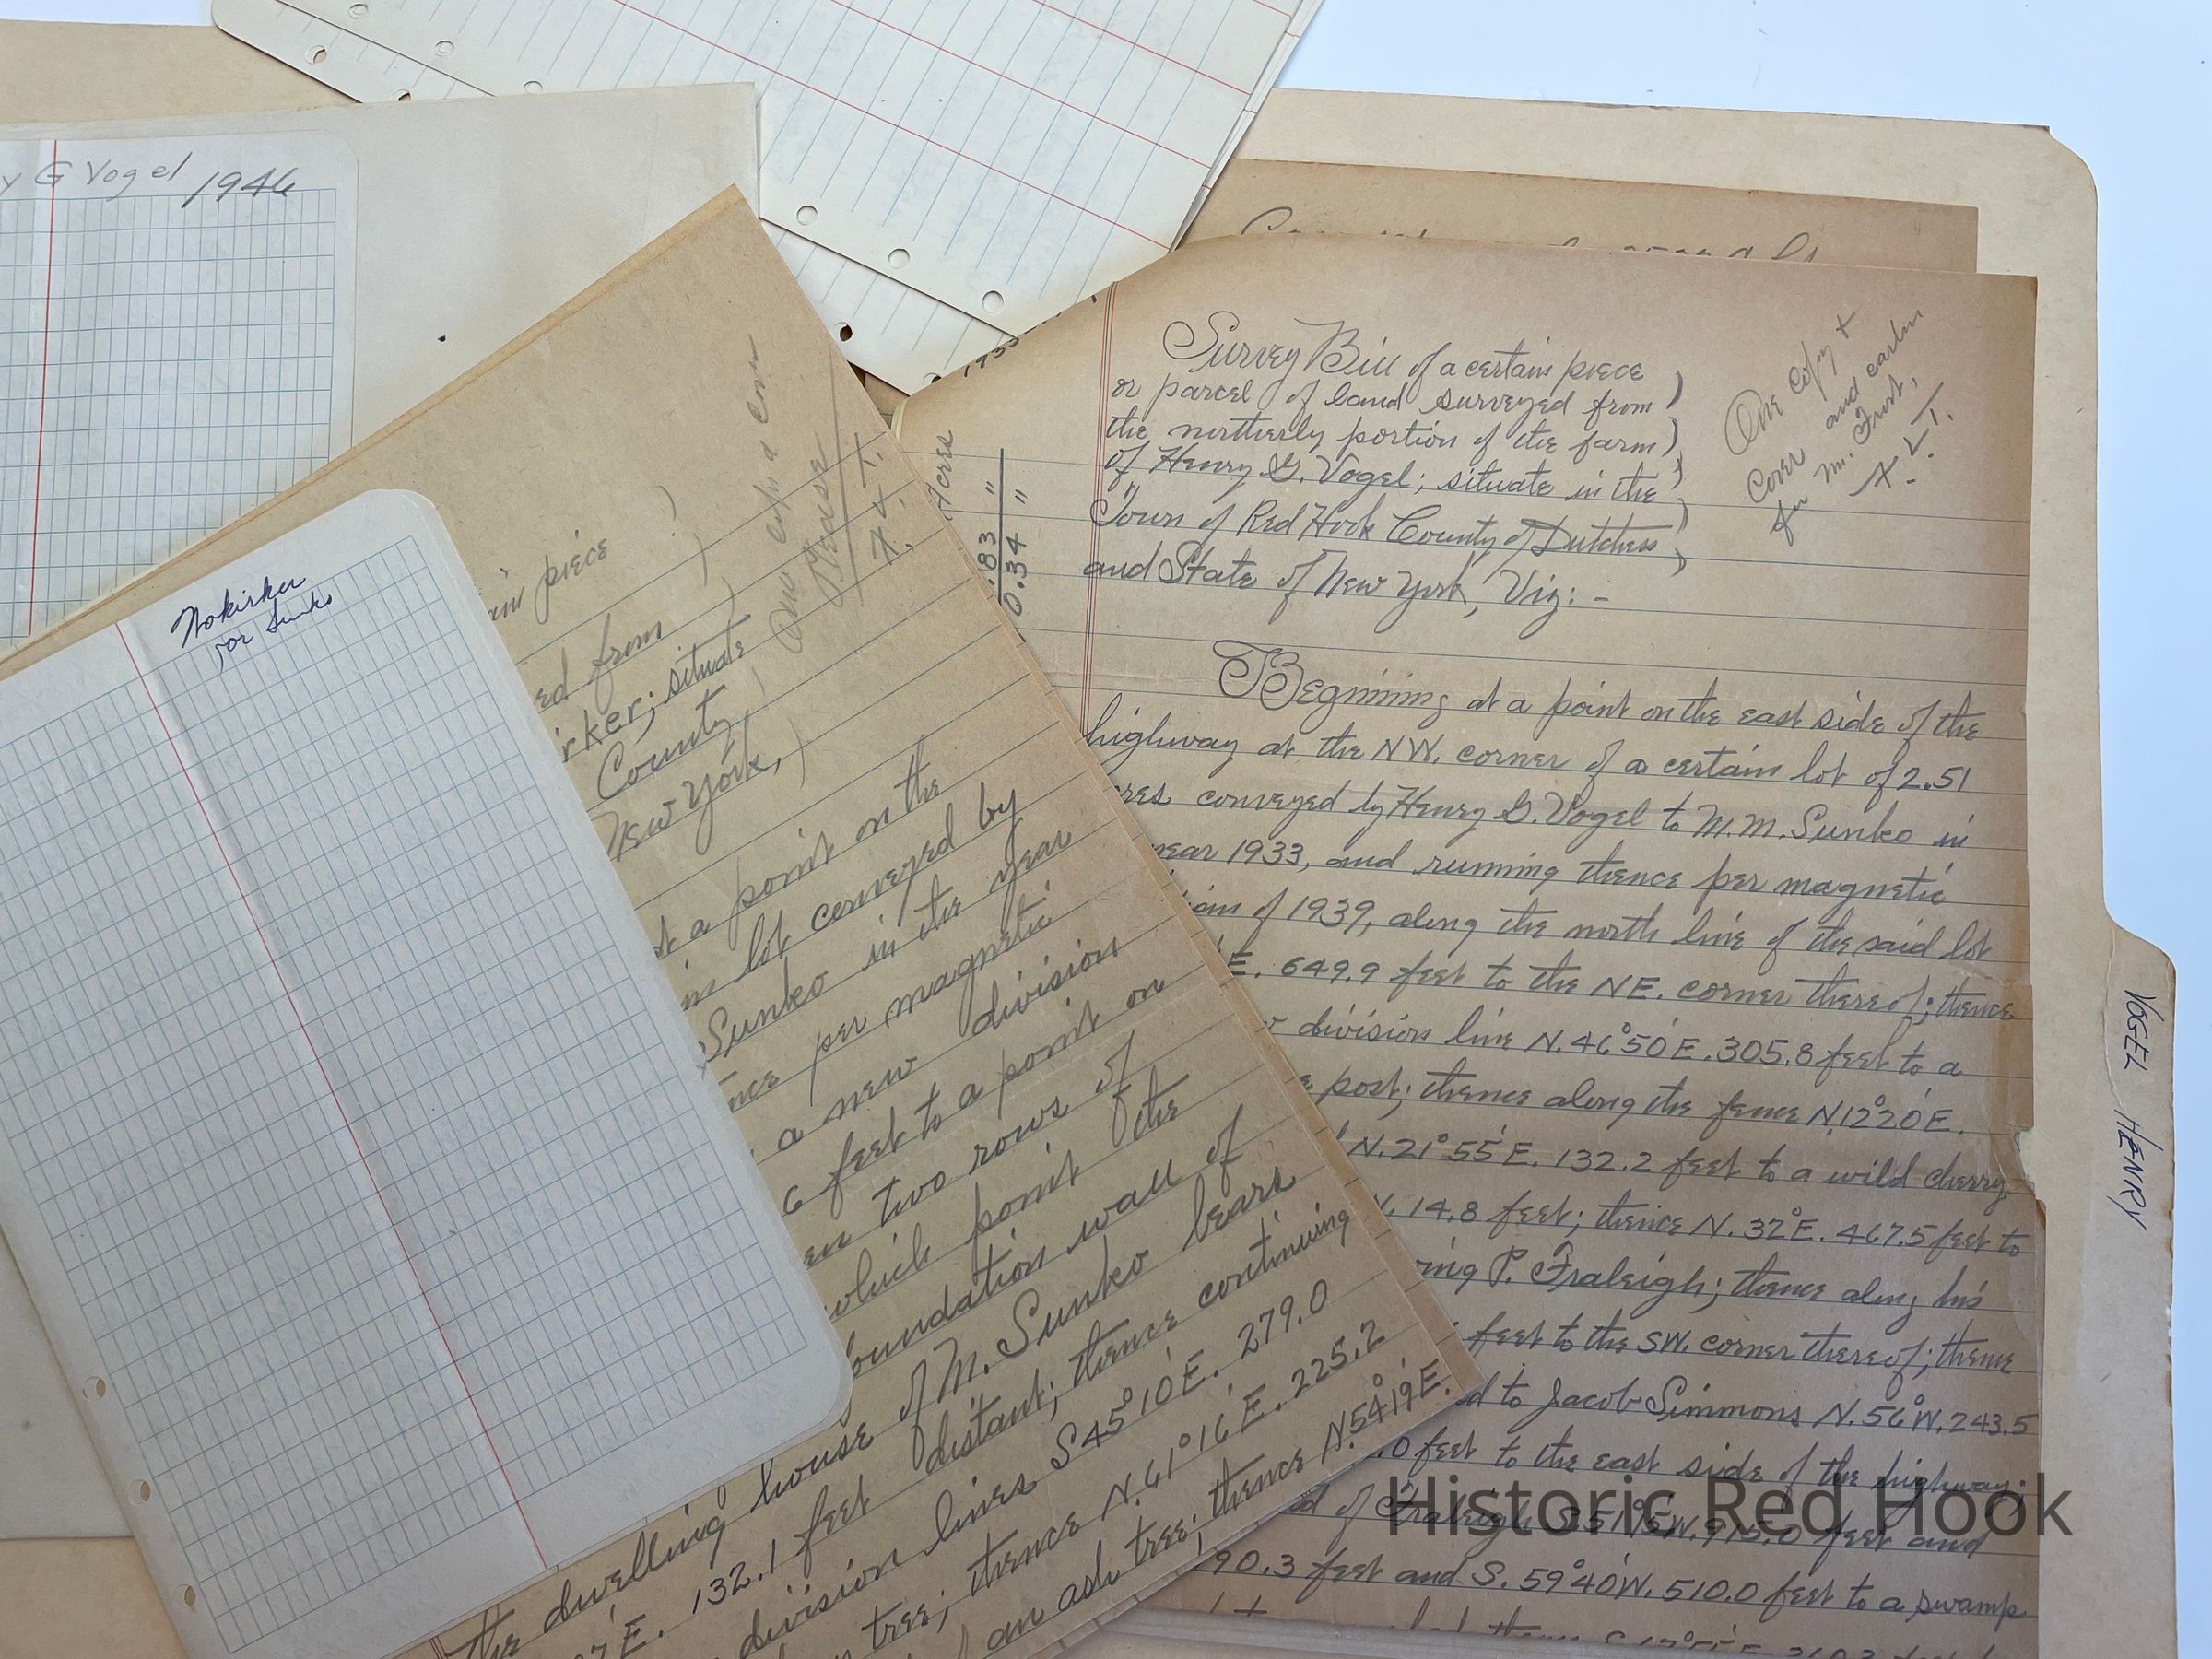 y G Vogel 1946
Nokirker
for Sunko
piece
ed from
rker; situate
County
New York,
One copy & Cover
Please
t a point on the
lot conveyed by
Sunko in the year
nce per magnetic
a new division
6 feet to a point on
en two rows of
which point the
foundation wall of
the dwelling house of M. Sunko bears
E. 132.1 feet distant; thence continuing
division lines S45°10'E. 279.0
tree; thence N.61°16'E. 225.2
an ash tree; thence N.54°19'E.
1933
Acres
.83 "
0.34 "
Survey Bill of a certain piece
or parcel of land surveyed from
the northerly portion of the farm
of Henry G. Vogel; situate in the
Town of Red Hook County of Dutchess
and State of New York, Viz: -
One copy +
Cover and carbon
for Mr. Frost,
Beginning at a point on the east side of the
highway at the NW. corner of a certain lot of 2.51
cres conveyed by Henry G. Vogel to M. M. Sunko in
year 1933, and running thence per magnetic
of 1939, along the north line of the said lot
E. 649.9 feet to the NE. corner thereof; thence
division line N.46°50'E. 305.8 feet to a
post; thence along the fence N.12°20'E.
N.21°55'E. 132.2 feet to a wild cherry
14.8 feet; thence N.32°E. 467.5 feet to
ring P. Fraleigh; thence along his
feet to the SW. corner thereof; thence
d to Jacob Simmons N.56°W. 243.5
.0 feet to the east side of the highway;
of Fraleigh S.51°15'W. 915.0 feet and
90.3 feet and S. 59°40'W. 510.0 feet to a swamp
VOGEL HENRY
Historic Red Hook